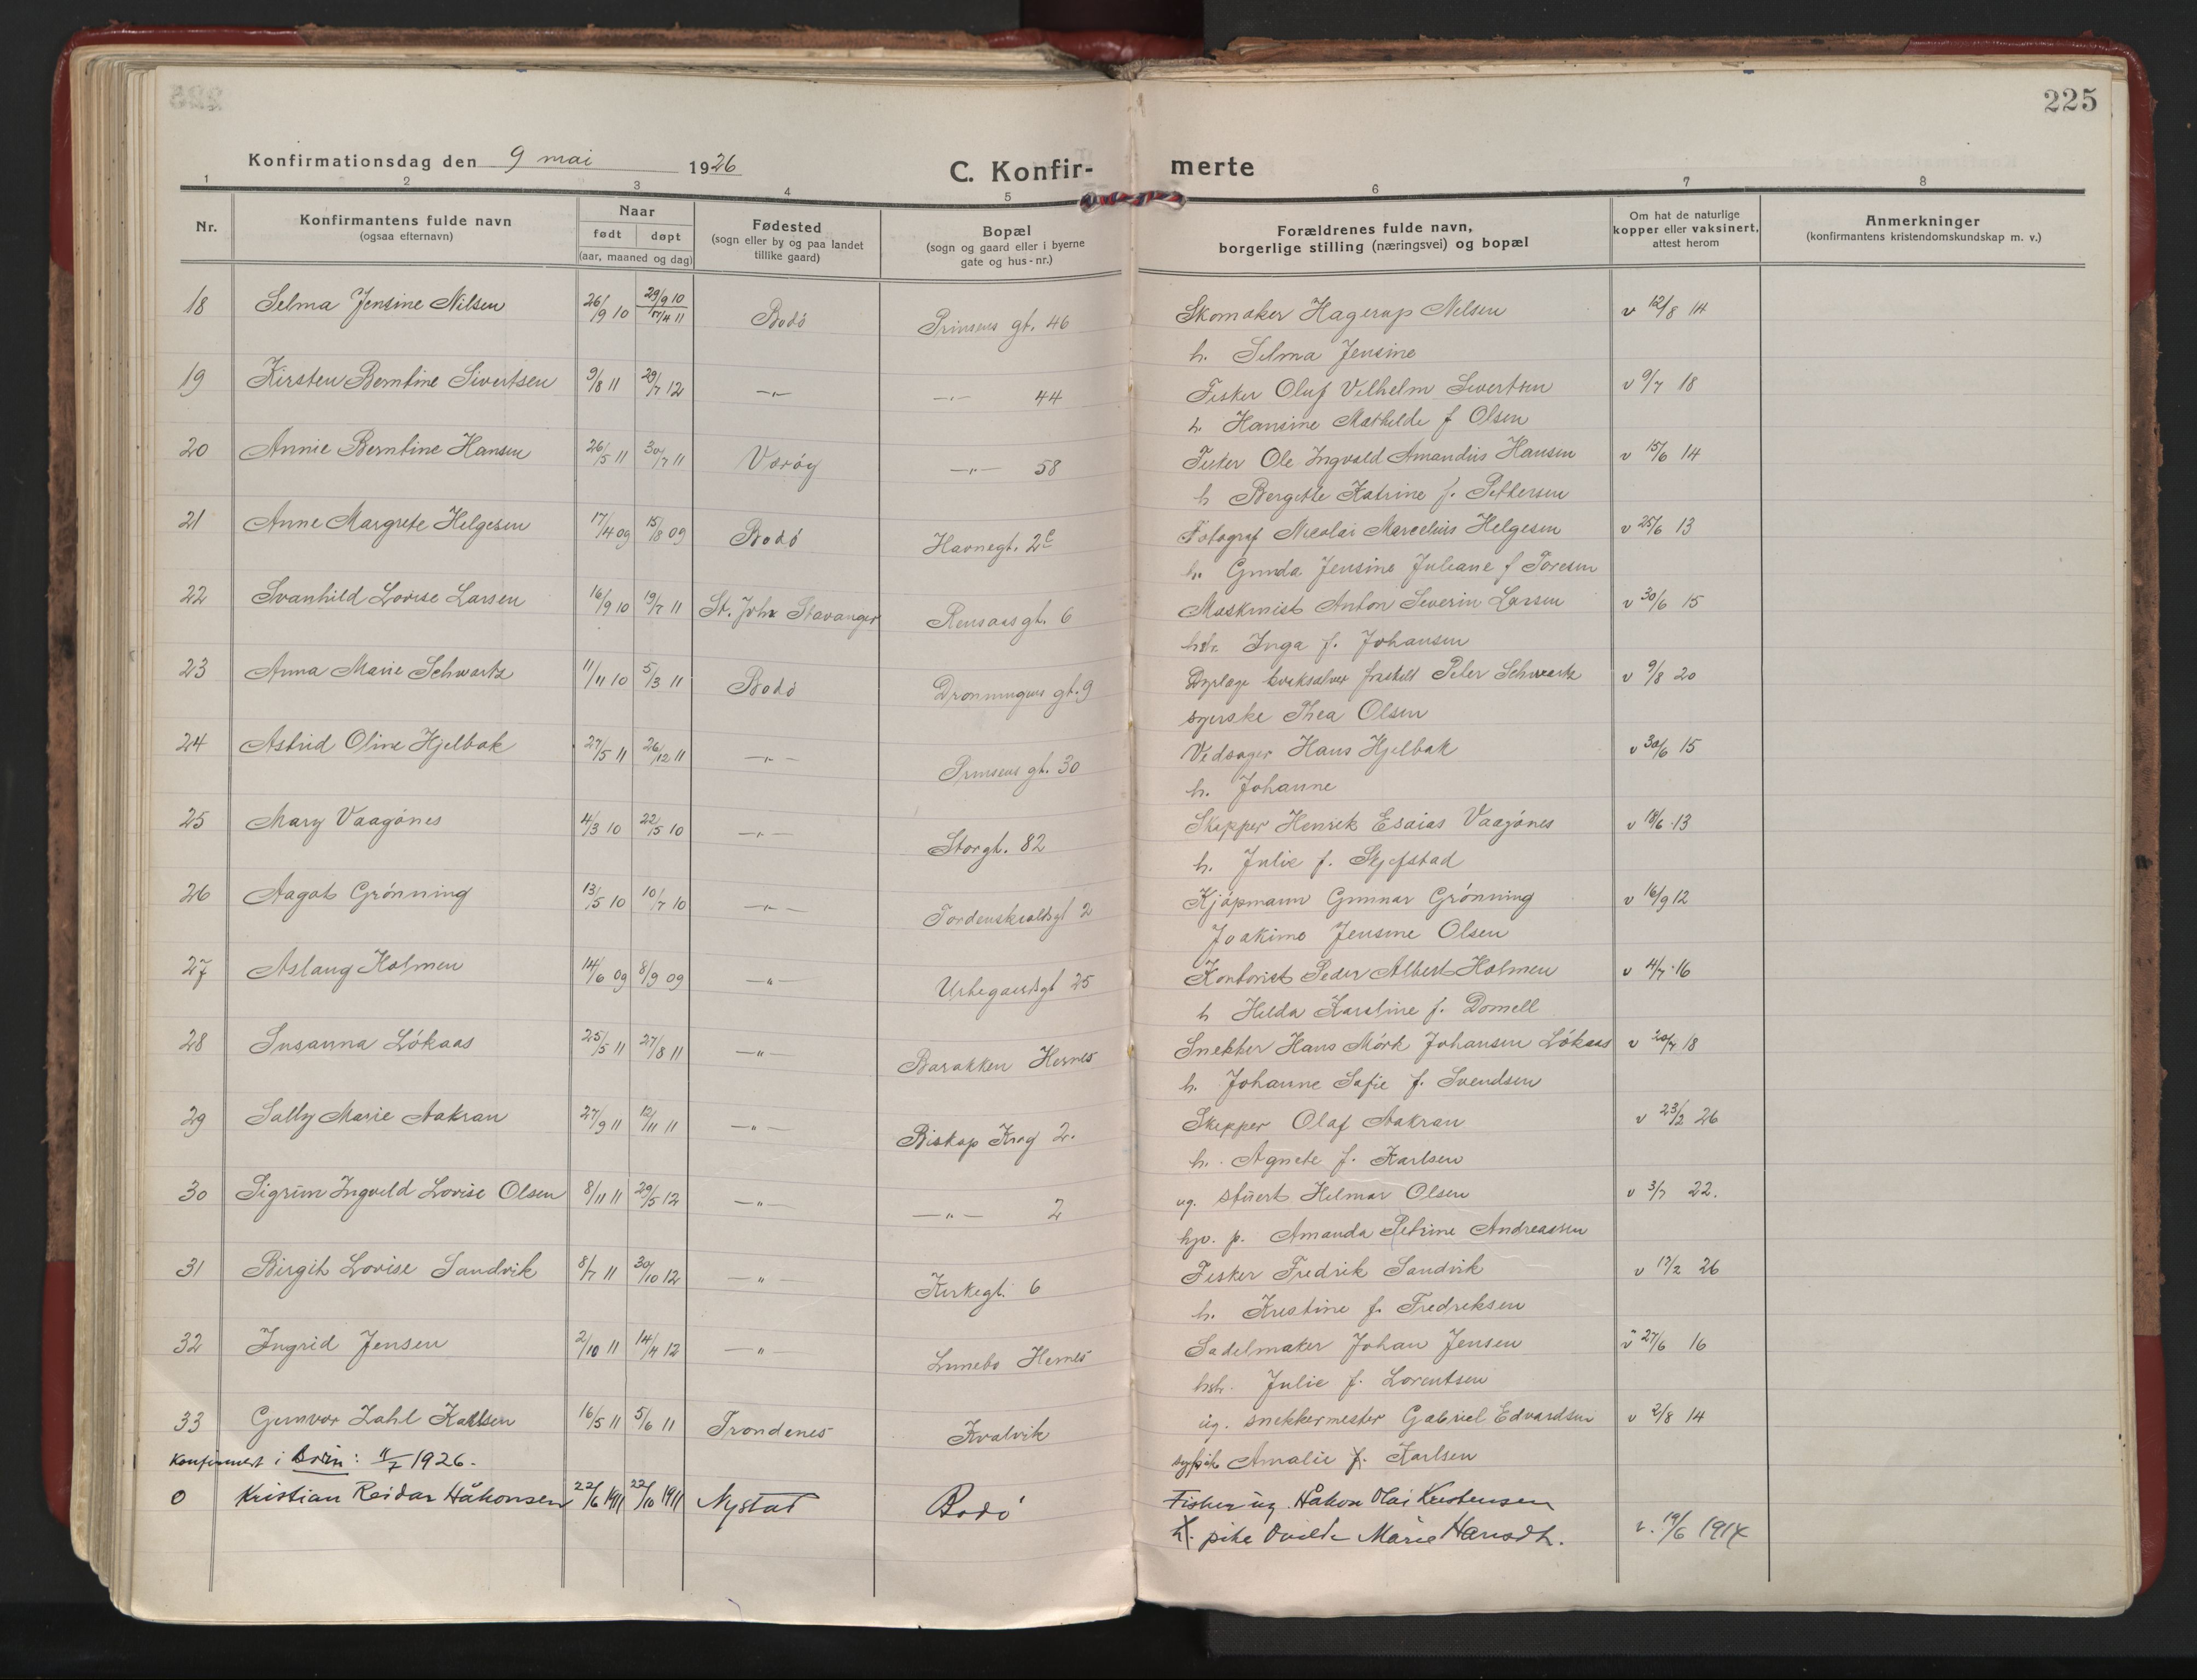 225
Konfirmationsdag den 9 mai 1926
C. Konfir- merte
1 2 3 4 5 6 7 8
Nr.
Konfirmantens fulde navn
(ogsaa efternavn)
Naar
født døpt
(aar, maaned og dag)
Fødested
(sogn eller by og paa landet
tillike gaard)
Bopæl
(sogn og gaard eller i byerne
gate og hus-nr.)
Forældrenes fulde navn,
borgerlige stilling (næringsvei) og bopæl
Om hat de naturlige
kopper eller vaksinert,
attest herom
Anmerkninger
(konfirmantens kristendomskundskap m. v.)
18 Selma Jensine Nilsen 26/9 10 29/9 10 Bodø Prinsens gt. 46 Skomaker Hagerup Nilsen v 12/8 14
17/4 11
h. Selma Jensine
19 Kirsten Berntine Sivertsen 9/8 11 29/7 12 —"— —"— 44 Fisker Oluf Vilhelm Sivertsen v 9/7 18
h. Hansine Mathilde f Olsen
20 Annie Berntine Hansen 26/5 11 30/7 11 Værøy —"— 58 Fisker Ole Ingvald Amandus Hansen v 15/6 14
h Bergitte Katrine f. Pettersen
21 Anne Margrete Helgesen 17/4 09 15/8 09 Bodø Havnegt. 2c Fotograf Nicolai Marcelius Helgesen v 25/6 13
h. Gunda Jensine Juliane f Toresen
22 Svanhild Lovise Larsen 16/9 10 19/7 11 St. Joh. Stavanger Rensaasgt. 6 Maskinist Anton Severin Larsen v 30/6 15
hstr. Inga f. Johansen
23 Anna Marie Schwartz 11/11 10 5/3 11 Bodø Dronningens gt. 9 Dyrlæge kvaksalver fraskilt Peter Schwartz v 9/8 20
syerske Thea Olsen
24 Astrid Oline Hjelbak 27/5 11 26/12 11 —"— Prinsens gt. 30 Vedsager Hans Hjelbak v 30/6 15
h. Johanne
25 Mary Vaagønes 4/3 10 22/5 10 —"— Storgt. 82 Skipper Henrik Esaias Vaagønes v 18/6 13
h. Julie f. Skjefstad
26 Aagot Grønning 13/5 10 10/7 10 —"— Tordenskioldsgt 2 Kjøpmann Gunnar Grønning v 16/9 12
Joakime Jensine Olsen
27 Aslaug Holmen 14/6 09 8/9 09 —"— Urtegaardsgt 25 Kontorist Peder Albert Holmen v 4/7 16
h Hilda Karoline f. Domell
28 Susanna Løkaas 25/5 11 27/8 11 —"— Barakken Hernes Snekker Hans Mørk Johansen Løkaas v 20/7 18
h. Johanne Sofie f. Svendsen
29 Sally Marie Aakran 27/9 11 12/11 11 —"— Biskop Krog 2. Skipper Olaf Aakran v 23/2 26
h. Agnete f. Karlsen
30 Sigrun Ingvild Lovise Olsen 8/11 11 29/5 12 —"— —"— 2 ug. stuert Hilmar Olsen v 3/7 22.
hjv. p. Amanda Petrine Andreassen
31 Birgit Lovise Sandvik 8/7 11 30/10 12 —"— Kirkegt. 6 Fisker Fredrik Sandvik v 17/2 26
h. Kristine f. Fredriksen
32 Ingrid Jensen 2/10 11 14/4 12 —"— Lunebo Hernes Sadelmaker Johan Jensen v 27/6 16
hstr. Julie f. Lorentsen
33 Gunvor Zahl Karlsen 16/5 11 5/6 11 Trondenes Kvalvik ug. snekkermester Gabriel Edvardsen v 2/8 14
Amalie f. Karlsen
Konfirmert i : 11/7 1926.
0 Kristian Reidar Håkonsen 22/6 1911 22/10 1911 Nystad Bodø Fisker ug. Håkon Olai Kristensen
h. pike Ovilde Marie Hansdt. v. 19/6 1914